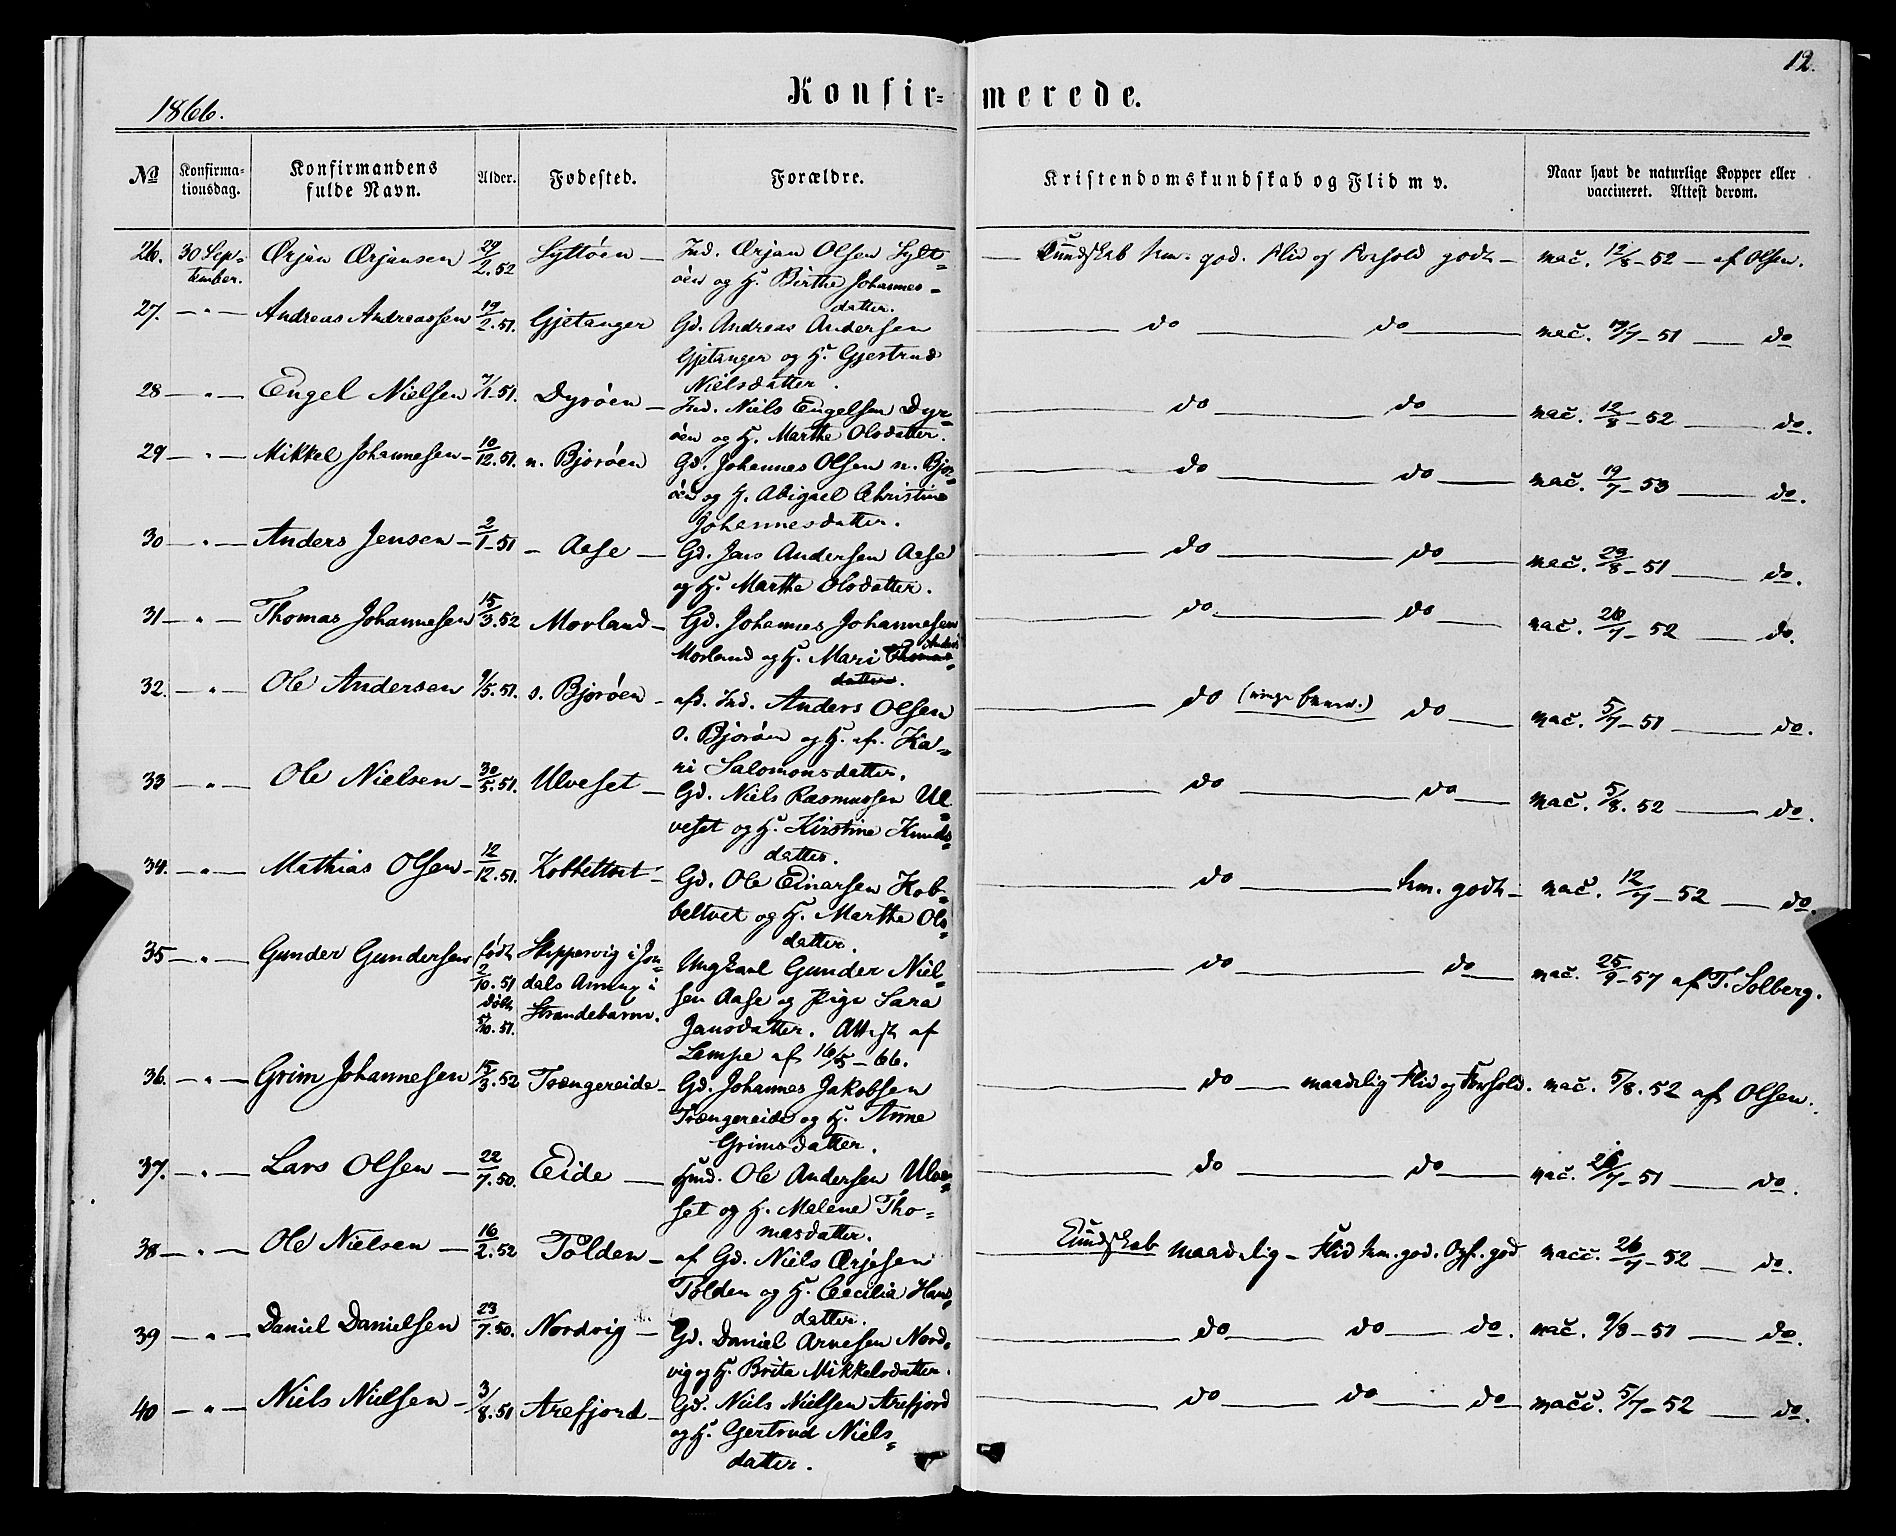 12.
1866.
Konfir=merede.
No Konfirma-tionsdag. Konfirmandens fulde Navn. Alder. Fødested. Forældre. Kristendomskundskab og Flid m v. Naar havt de naturlige Kopper eller vaccineret. Attest derom.
26. 30 Sep-tember. Ørjan Ørjansen 29/2.52 Syltøen — Ind. Ørjan Olsen Sylt=
øen og H. Birthe Johannes=
datter.
Kundskab god. Flid og Forhold godt — vac. 12/8-52 — af Olsen.
27. — " — Andreas Andreassen 19/2.51. Gjetanger Gd. Andreas Andersen
Gjetanger og H. Gjertrud
Nielsdatter.
do do vac. -51 do
28 — " — Engel Nielsen 7/1-51. Dyrøen — Ind. Niels Engelsen Dyr=
øen og H. Marthe Olsdatter.
do do vac. 12/8-52 do.
29 — " — Mikkel Johannesen — 10/12.51. n. Bjorøen Gd. Johannes Olsen n. Bjor=
øen og H. Abigael Christine
Johannesdatter.
do do vac. 19/7-53 do.
30 — " — Anders Jensen — 2/1-51 — Aase — Gd. Jens Andersen Aase
og H. Marthe Olsdatter.
do do vac. 23/8-51 do.
31 — " — Thomas Johannesen 15/3.52 Morland — Gd. Johannes Johannesen
Morland og H. Mari Thomas=
datter.
do do vac. -52 do.
32. — " — Ole Andersen 9/5.51. s. Bjorøen — afd. Ind. Anders Olsen
s. Bjorøen og H. af. Ka=
ri Salomonsdatter.
do do vac. 5/7-51 do.
33 — " — Ole Nielsen — 30/5.51. Ulveset — Gd. Niels Rasmussen Ul=
veset og H. Kirstine Knuds=
datter.
do do vac. 5/8.52 do.
34. — " — Mathias Olsen — 12/12.51. Kobbeltvet — Gd. Ole Einarsen Kob=
beltvet og H. Marthe Ols=
datter.
do godt — vac. 12/7-52 do.
35 — " — Gunder Gundersen født 2/10.51 døbt 5/10.51. Skippervig i Jon=
dals Annex i
Strandebarm.
Ungkarl Gunder Niel=
sen Aase og Pige Sara
Jansdatter. Attest af
Lampe af 16/5-66.
do do vac. 25/9-57 af T. Solberg.
36. — " — Grim Johannesen 15/3.52 Trængereide — Gd. Johannes Jakobsen
Trængereide og H. Anne
Grimsdatter.
do maadelig Flid og Forhold. vac. 5/8.52 af Olsen.
37. — " — Lars Olsen — 22/7.50. Eide — Hmd. Ole Andersen Ulve=
set og H. Malene Tho=
masdatter.
do do vac. 26/7-51 do.
38 — " — Ole Nielsen — 16/2.52 Tolden — af Gd. Niels Ørjesen
Tolden og H. Cecilia Hans=
datter.
Kundskab maadelig — Flid god. Opf. god vacc. 26/7-52 do.
39 — " — Daniel Danielsen 23/7.50. Nordvig — Gd. Daniel Arnesen Nord=
vig og H. Brita Mikkelsdatter.
do do do. vac. 9/8-51 do.
40 — " — Niels Nielsen — 3/8.51 Arefjord — Gd. Niels Nielsen Arefjord
og H. Gertrud Niels=
datter.
do do do vacc. 5/7-52 do.